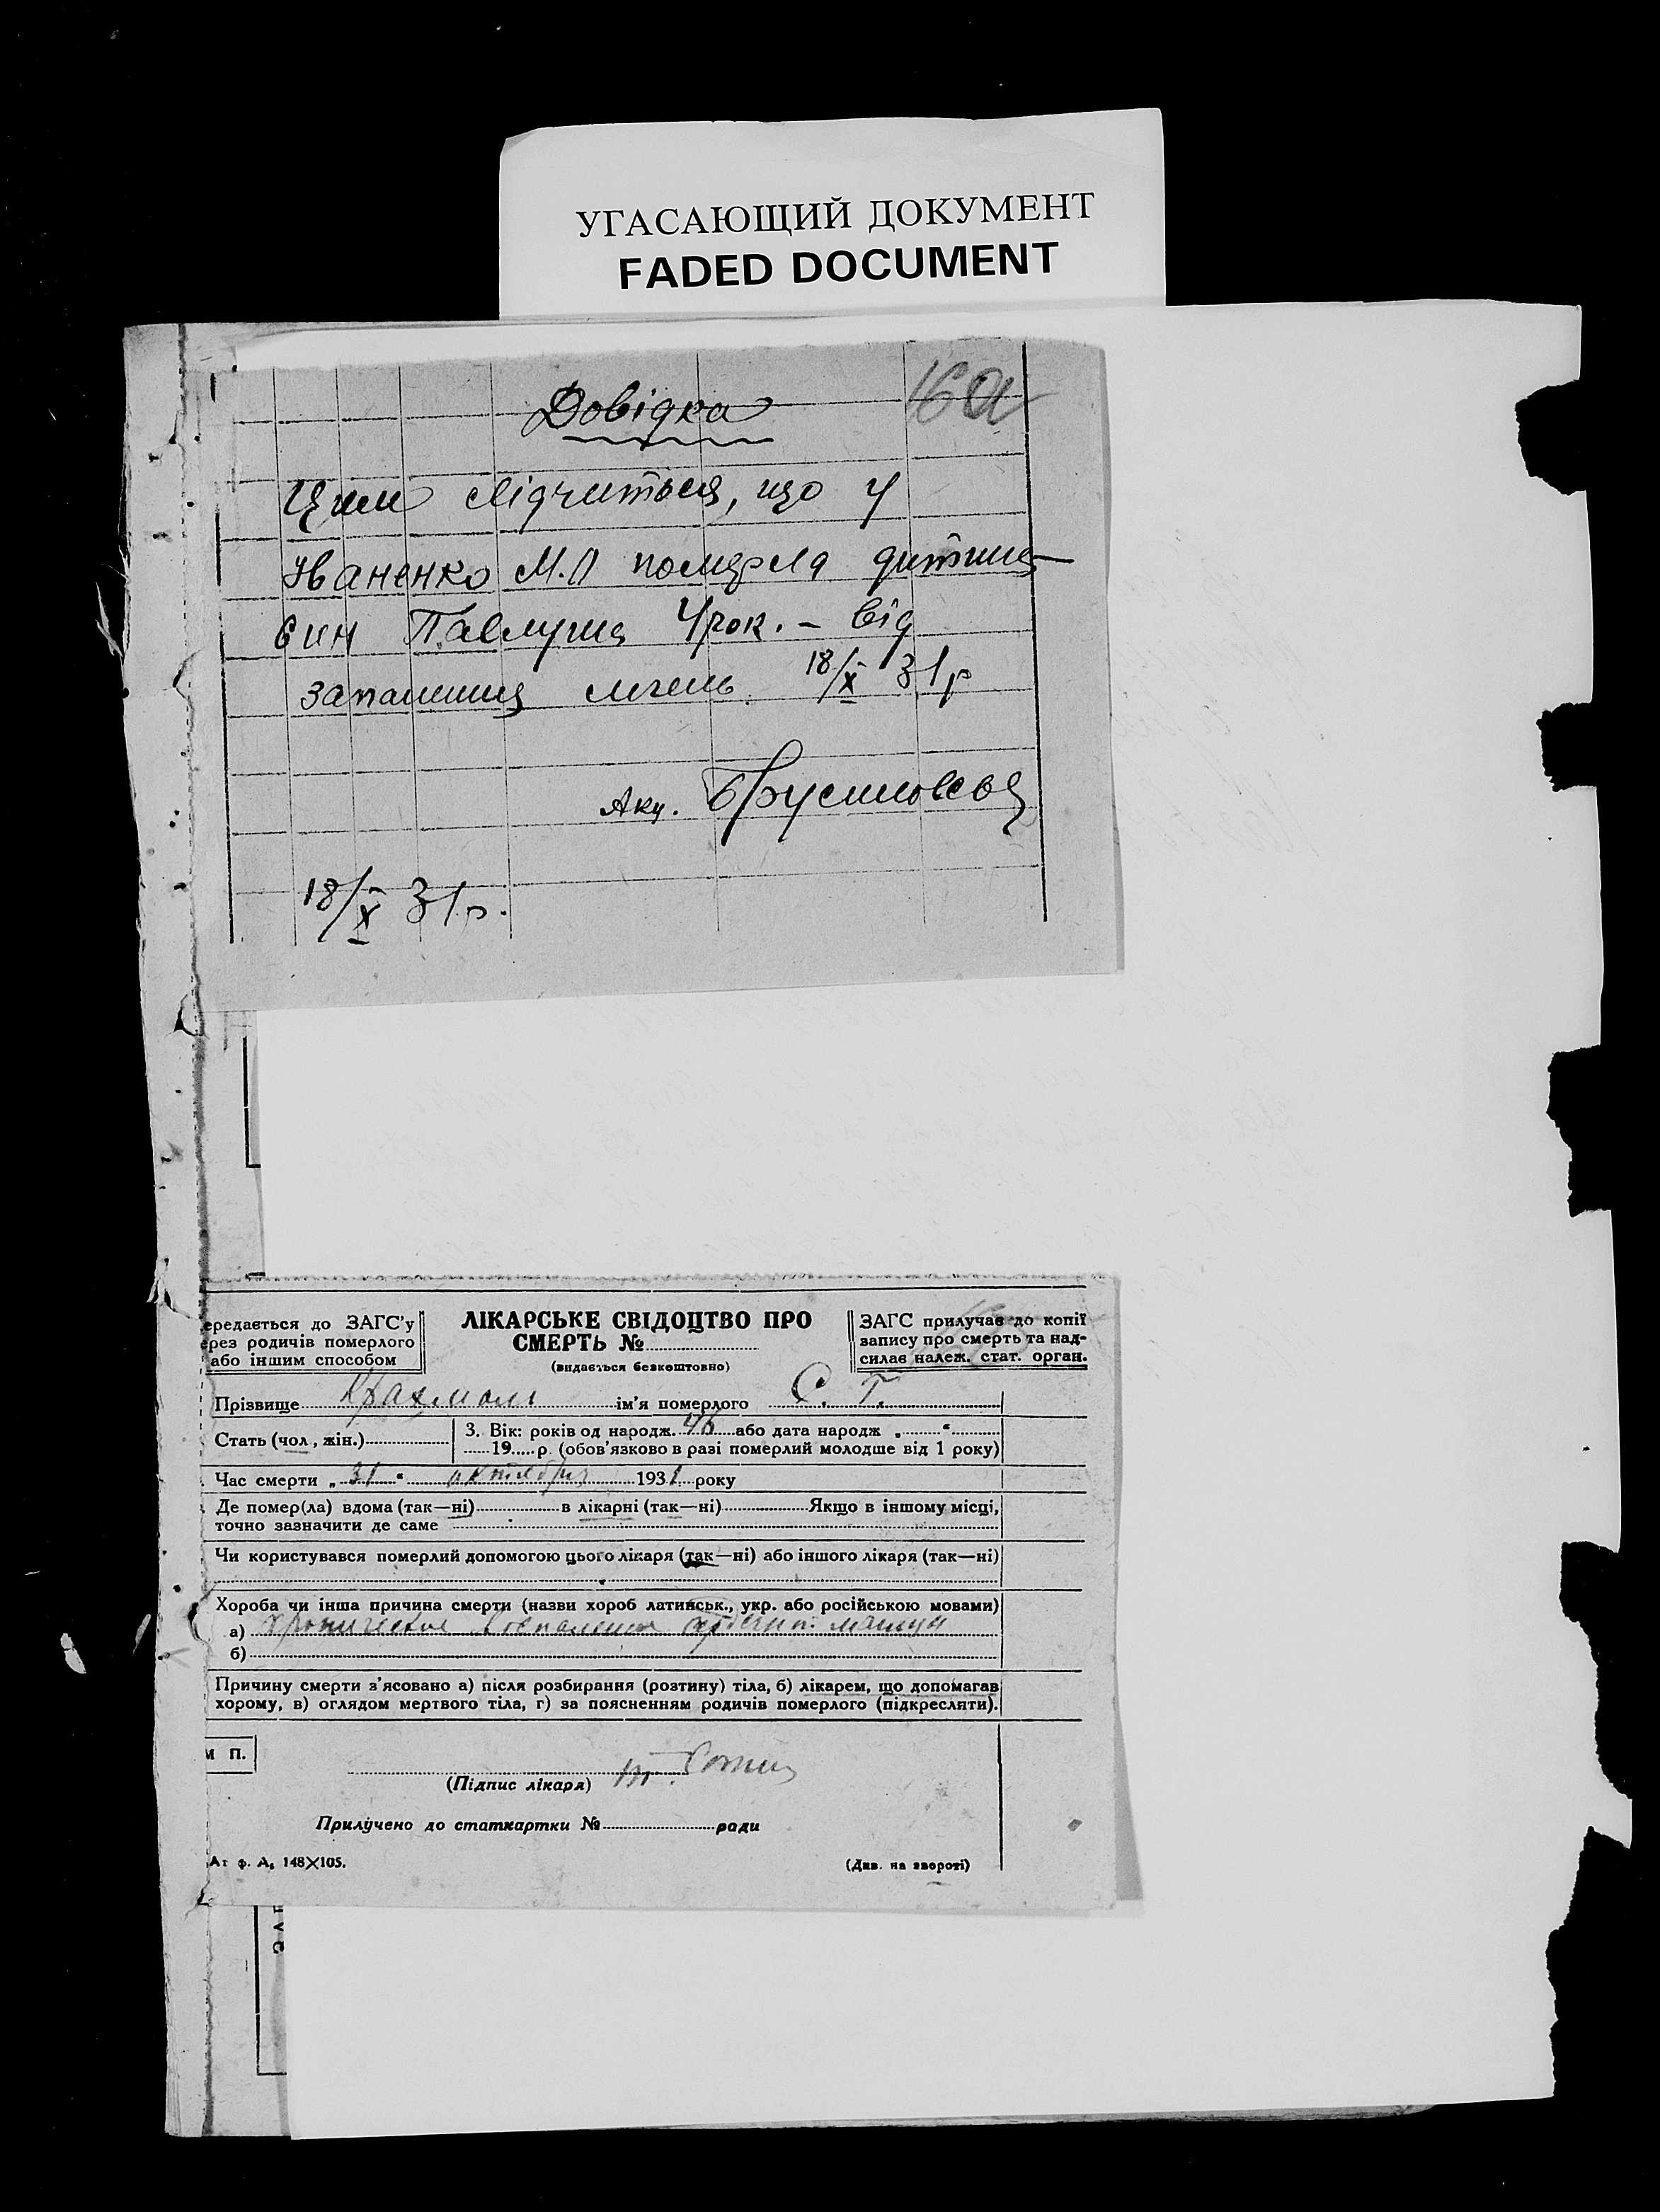 УГАСАЮЩИЙ ДОКУМЕНТ
FADED DOCUMENT
16а
Довідка
Цим свідчиться, що у
Іваненко М.П померла дитина
син Павлуша 4 рок. – від
запалення легень. 18/X 31 р
Аку.
18/X 31 р.
ередається до ЗАГС'у
ерез родичів померлого
або іншим способом
ЛІКАРСЬКЕ СВІДОЦТВО ПРО
СМЕРТЬ №
(видається безкоштовно)
ЗАГС прилучає до копії
запису про смерть та над-
силає належ. стат. орган.
Прізвище ім'я померлого С. Г.
Стать (чол, жін.)
3. Вік: років од народж. 46 або дата народж „ “
19 р. (обов'язково в разі померлий молодше від 1 року)
Час смерти „31“ октября 1931 року
Де помер(ла) вдома (так—ні) в лікарні (так—ні) Якщо в іншому місці,
точно зазначити де саме
Чи користувався померлий допомогою цього лікаря (так—ні) або іншого лікаря (так—ні)
Хороба чи інша причина смерти (назви хороб латинськ., укр. або російською мовами)
а) хроническое воспаление мышцы
б)
Причину смерти з'ясовано а) після розбирання (розтину) тіла, б) лікарем, що допомагав
хорому, в) оглядом мертвого тіла, г) за поясненням родичів померлого (підкреслити).
М П.
(Підпис лікаря)
Прилучено до статкартки № ради
Ат ф. А₆ 148×105.
(Див. на звороті)